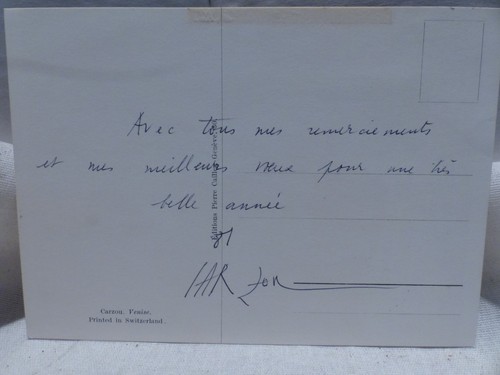 Avec tous mes remerciements
et mes meilleurs vœux pour une très
belle année
81
CARZOU
Editions Pierre Genève
Carzou. Venise.
Printed in Switzerland.